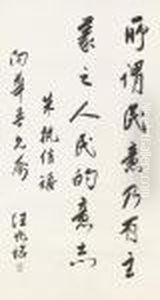 所謂民意乃有主
義之人民的意志
朱執信語
向華吾兄
汪兆銘